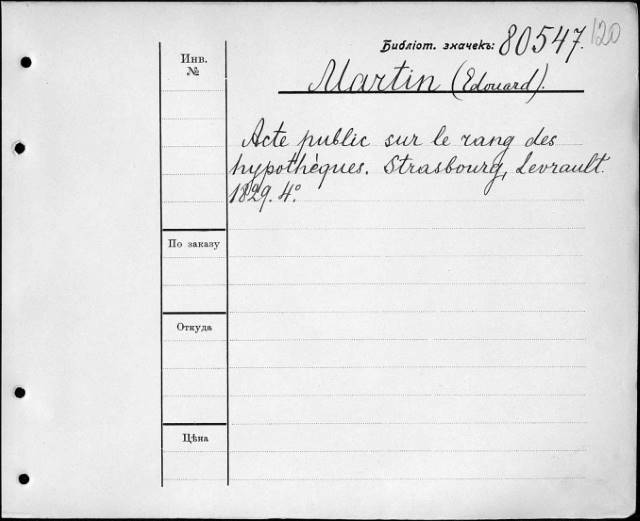 Библіот. значекъ: 80547. 120
Инв. №
Martin (Edouard).
Acte public sur le rang des
hypothèques. Strasbourg, Levrault.
1829. 4º
По заказу
Откуда
Цѣна